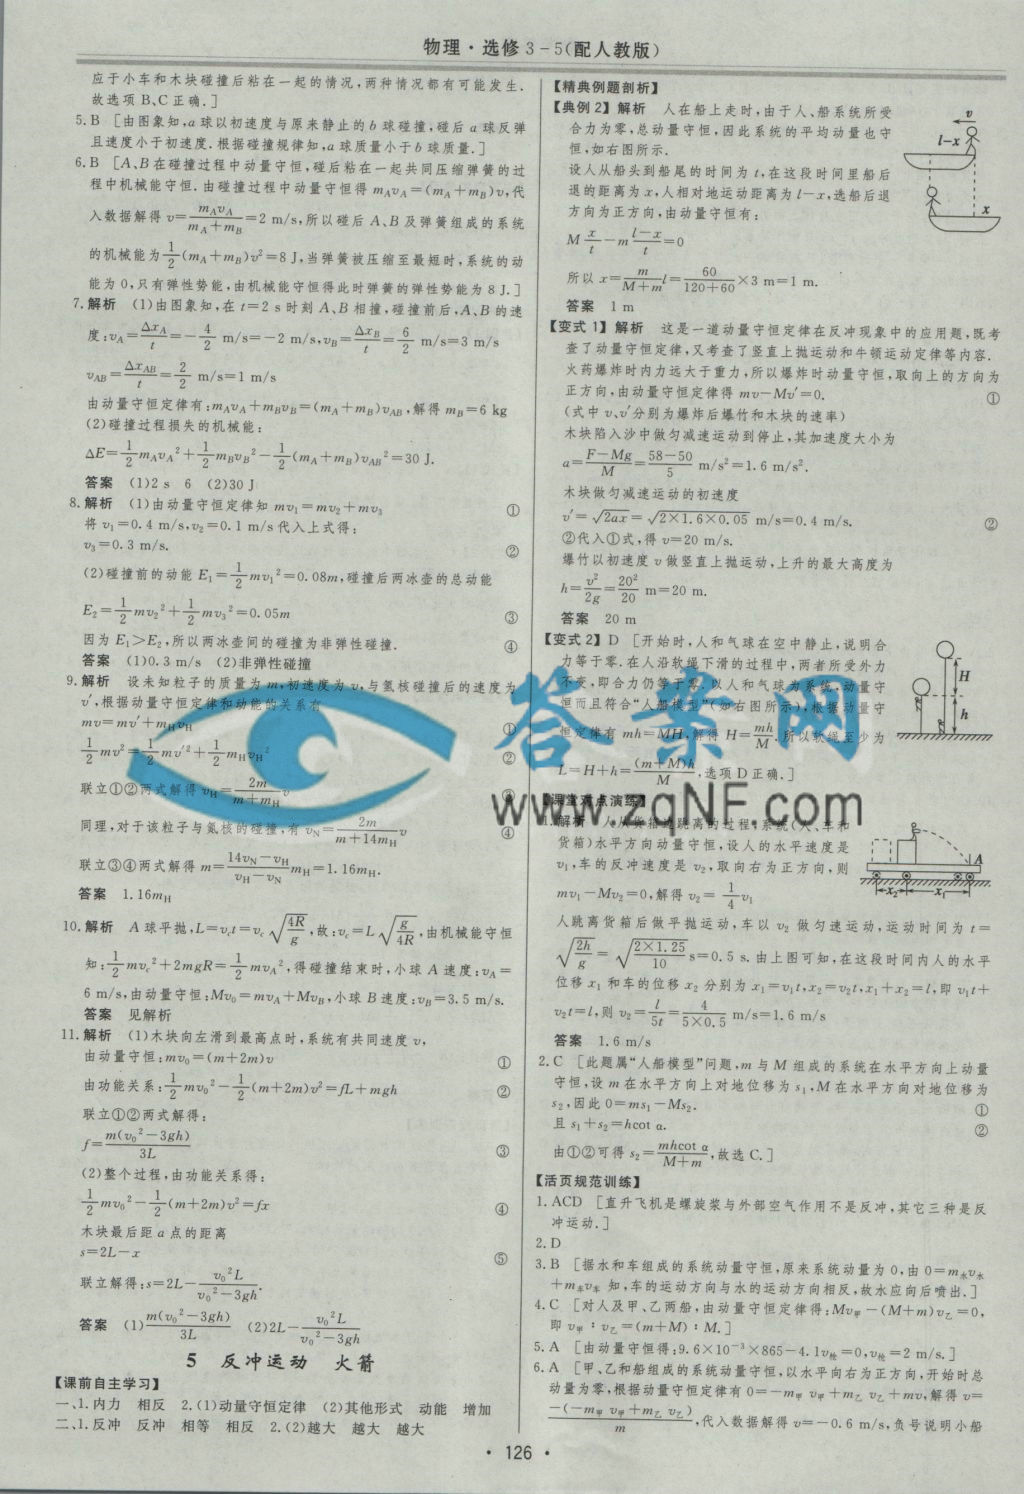 物理·选修3-5(配人教版)
应于小车和木块碰撞后粘在一起的情况,两种情况都有可能发生.
故选项B、C正确.]
5.B [由图象知,a球以初速度与原来静止的b球碰撞,碰后a球反弹
且速度小于初速度.根据碰撞规律知,a球质量小于b球质量.]
6.B [A、B在碰撞过程中动量守恒,碰后粘在一起共同压缩弹簧的过
程中机械能守恒.由碰撞过程中动量守恒得mAvA=(mA+mB)v,代
入数据解得v=mAvA/(mA+mB)=2 m/s,所以碰后A、B及弹簧组成的系统
的机械能为1/2(mA+mB)v²=8 J,当弹簧被压缩至最短时,系统的动
能为0,只有弹性势能,由机械能守恒得此时弹簧的弹性势能为8 J.]
7.解析 (1)由图象知,在t=2 s时刻A、B相撞,碰撞前后,A、B的速
度:vA=ΔxA/t=-4/2 m/s=-2 m/s,vB=ΔxB/t=6/2 m/s=3 m/s
vAB=ΔxAB/t=2/2 m/s=1 m/s
由动量守恒定律有:mAvA+mBvB=(mA+mB)vAB,解得mB=6 kg
(2)碰撞过程损失的机械能:
ΔE=1/2mAvA²+1/2mBvB²-1/2(mA+mB)vAB²=30 J.
答案 (1)2 s 6 (2)30 J
8.解析 (1)由动量守恒定律知mv1=mv2+mv3 ①
将v1=0.4 m/s,v2=0.1 m/s代入上式得:
v3=0.3 m/s. ②
(2)碰撞前的动能E1=1/2mv1²=0.08m,碰撞后两冰壶的总动能
E2=1/2mv2²+1/2mv3²=0.05m ③
因为E1>E2,所以两冰壶间的碰撞为非弹性碰撞. ④
答案 (1)0.3 m/s (2)非弹性碰撞
9.解析 设未知粒子的质量为m,初速度为v,与氢核碰撞后的速度为
v′,根据动量守恒定律和动能的关系有
mv=mv′+mHvH ①
1/2mv²=1/2mv′²+1/2mHvH² ②
联立①②两式解得vH=2m/(m+mH)v ③
同理,对于该粒子与氮核的碰撞,有vN=2m/(m+14mH)v ④
联立③④两式解得m=(14vN-vH)/(vH-vN)mH=1.16mH.
答案 1.16mH
10.解析 A球平抛,L=vct=vc√(4R/g),故:vc=L√(g/4R),由机械能守恒
知:1/2mvc²+2mgR=1/2mvA²,得碰撞结束时,小球A速度:vA=
6 m/s,由动量守恒:Mv0=mvA+MvB,小球B速度:vB=3.5 m/s.
答案 见解析
11.解析 (1)木块向左滑到最高点时,系统有共同速度v,
由动量守恒:mv0=(m+2m)v ①
由功能关系:1/2mv0²-1/2(m+2m)v²=fL+mgh ②
联立①②两式解得:
f=m(v0²-3gh)/3L ③
(2)整个过程,由功能关系得:
1/2mv0²-1/2(m+2m)v²=fx ④
木块最后距a点的距离
s=2L-x ⑤
联立解得:s=2L-v0²L/(v0²-3gh).
答案 (1)m(v0²-3gh)/3L (2)2L-v0²L/(v0²-3gh)
5 反冲运动 火箭
【课前自主学习】
一、1.内力 相反 2.(1)动量守恒定律 (2)其他形式 动能 增加
二、1.反冲 反冲 相等 相反 2.(2)越大 越大 越大
【精典例题剖析】
【典例2】解析 人在船上走时,由于人、船系统所受
合力为零,总动量守恒,因此系统的平均动量也守
恒,如右图所示.
设人从船头到船尾的时间为t,在这段时间里船后
退的距离为x,人相对地运动距离为l-x,选船后退
方向为正方向,由动量守恒有:
Mx/t-m(l-x)/t=0
所以x=m/(M+m)l=60/(120+60)×3 m=1 m.
答案 1 m
v
l-x
x
【变式1】解析 这是一道动量守恒定律在反冲现象中的应用题,既考
查了动量守恒定律,又考查了竖直上抛运动和牛顿运动定律等内容.
火药爆炸时内力远大于重力,所以爆炸时动量守恒,取向上的方向为
正方向,由动量守恒定律得mv-Mv′=0. ①
(式中v、v′分别为爆炸后爆竹和木块的速率)
木块陷入沙中做匀减速运动到停止,其加速度大小为
a=(F-Mg)/M=(58-50)/5 m/s²=1.6 m/s².
木块做匀减速运动的初速度
v′=√(2ax)=√(2×1.6×0.05) m/s=0.4 m/s. ②
②代入①式,得v=20 m/s.
爆竹以初速度v做竖直上抛运动,上升的最大高度为
h=v²/2g=20²/20 m=20 m.
答案 20 m
【变式2】D [开始时,人和气球在空中静止,说明合
力等于零.在人沿软绳下滑的过程中,两者所受外力
不变,即合力仍等于零.以人和气球为系统,动量守
恒而且符合“人船模型”(如右图所示),根据动量守
恒定律有mh=MH,解得H=mh/M.所以软绳至少为
L=H+h=(m+M)h/M,选项D正确.]
H
h
【课堂对点演练】
1.解析 人从货箱边跳离的过程,系统(人、车和
货箱)水平方向动量守恒,设人的水平速度是
v1,车的反冲速度是v2,取向右为正方向,则
mv1-Mv2=0,解得v2=1/4v1
人跳离货箱后做平抛运动,车以v2做匀速运动,运动时间为t=
√(2h/g)=√(2×1.25/10)s=0.5 s.由上图可知,在这段时间内人的水平
位移x1和车的位移x2分别为x1=v1t,x2=v2t,x1+x2=l,即v1t+
v2t=l,则v2=l/5t=4/(5×0.5) m/s=1.6 m/s
答案 1.6 m/s
A
x2
x1
2.C [此题属“人船模型”问题,m与M组成的系统在水平方向上动量
守恒,设m在水平方向上对地位移为s1,M在水平方向对地位移为
s2,因此0=ms1-Ms2. ①
且s1+s2=hcot α. ②
由①②可得s2=mhcot α/(M+m),故选C.]
【活页规范训练】
1.ACD [直升飞机是螺旋桨与外部空气作用不是反冲,其它三种是反
冲运动.]
2.D
3.B [据水和车组成的系统动量守恒,原来系统动量为0,由0=m水v水
+m车v车知,车的运动方向与水的运动方向相反,故水应向后喷出.]
4.C [对人及甲、乙两船,由动量守恒定律得:Mv甲-(M+m)v乙=0,
即v甲∶v乙=(m+M)∶M.]
5.A [由动量守恒得:9.6×10⁻³×865-4.1v枪=0,v枪=2 m/s.]
6.A [甲、乙和船组成的系统动量守恒,以水平向右为正方向,开始时总
动量为零,根据动量守恒定律有0=-m甲v甲+m乙v乙+mv,解得v=
-(-m甲v甲+m乙v乙)/m,代入数据解得v=-0.6 m/s,负号说明小船
答案网
www.zqNF.com
·126·